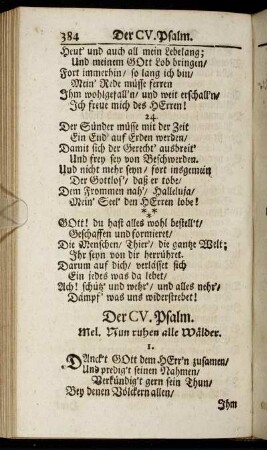 384 Der CV. Psalm.
Heut' und auch all mein Lebelang;
Und meinem GOtt Lob bringen/
Fort immerhin/ so lang ich bin/
Mein' Rede müsse ferren
Ihm wohlgefall'n/ und weit erschall'n/
Ich freue mich des HErren!
24.
Der Sünder müsse mit der Zeit
Ein End' auf Erden werden/
Damit sich der Gerecht' ausbreit'
Und frey sey von Beschwerden.
Und nicht mehr seyn/ fort insgemein
Der Gottlos'/ daß er tobe/
Dem Frommen nah'/ Halleluja/
Mein' Seel' den HErren lobe!
* * *
GOtt! du hast alles wohl bestellt'/
Geschaffen und formieret/
Die Menschen/ Thier'/ die gantze Welt;
Ihr seyn von dir herrühret.
Darum auf dich/ verlässet sich
Ein jedes was da lebet/
Ach! schütz' und wehr'/ und alles nehr'/
Dämpf' was uns widerstrebet!
Der CV. Psalm.
Mel. Nun ruhen alle Wälder.
1.
DAnck't GOtt dem HErr'n zusamen/
Und predig't seinen Nahmen/
Verkündig't gern sein Thun/
Bey denen Völckern allen/
Ihm